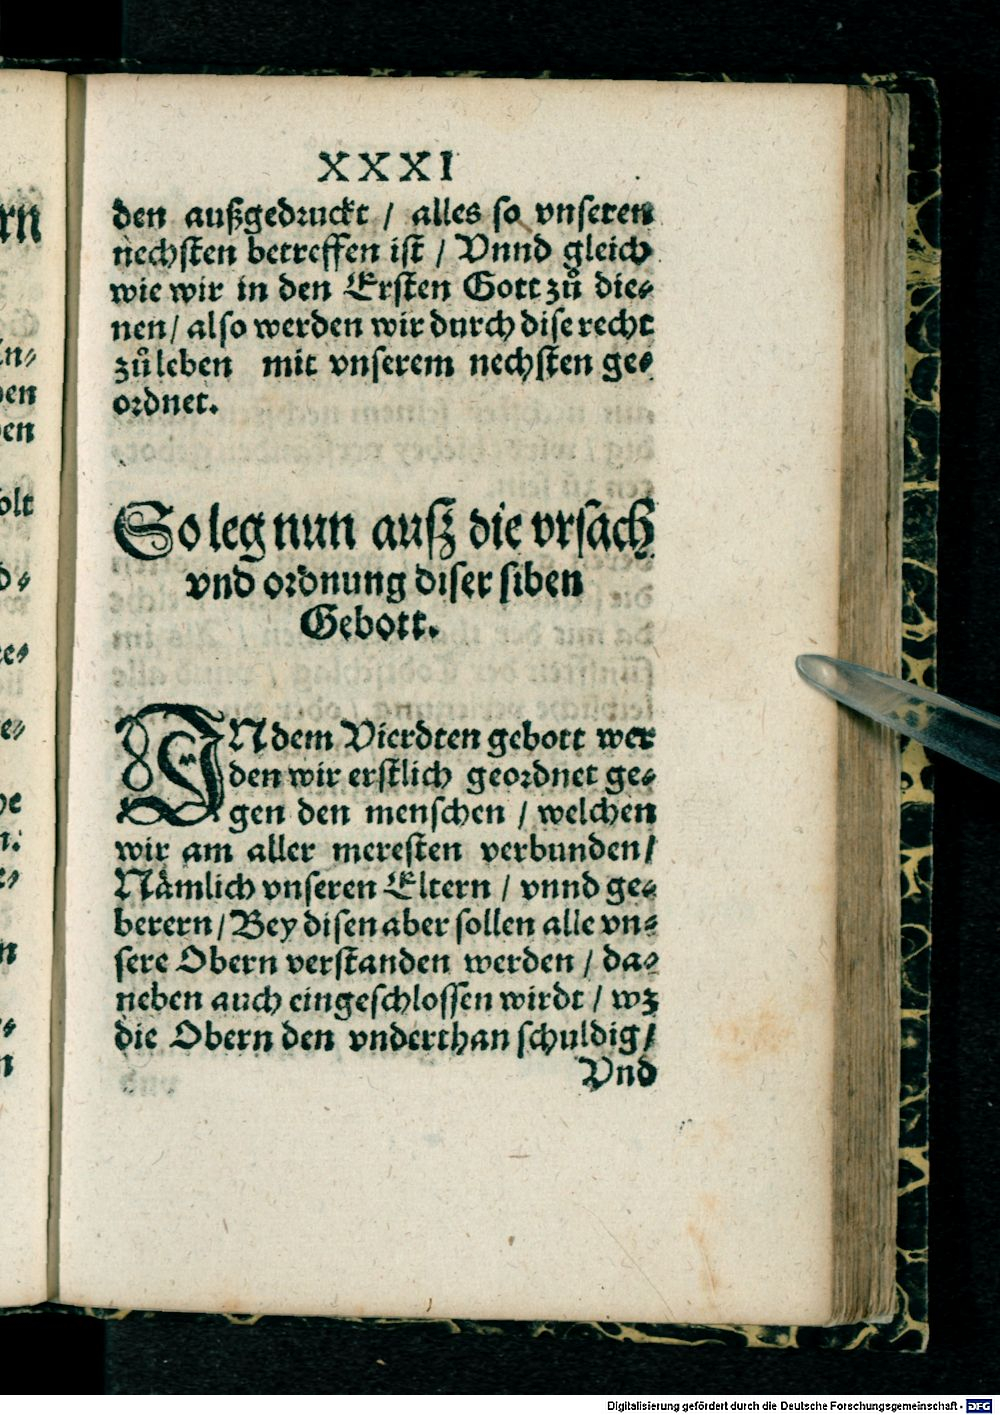 XXXI
den außgedruckt / alles so vnseren
nechsten betreffen ist / Vnnd gleich
wie wir in den Ersten Gott zů die⸗
nen / also werden wir durch dise recht
zů leben mit vnserem nechsten ge⸗
ordnet.
So leg nun auß die vrsach
vnd ordnung diser siben
Gebott.
IN dem Vierdten gebott wer
den wir erstlich geordnet ge⸗
gen den menschen / welchen
wir am aller meresten verbunden /
Nämlich vnseren Eltern / vnnd ge⸗
berern / Bey disen aber sollen alle vn⸗
sere Obern verstanden werden / da⸗
neben auch eingeschlossen wirdt / wz
die Obern den vnderthan schuldig /
Vnd
Digitalisierung gefördert durch die Deutsche Forschungsgemeinschaft - DFG